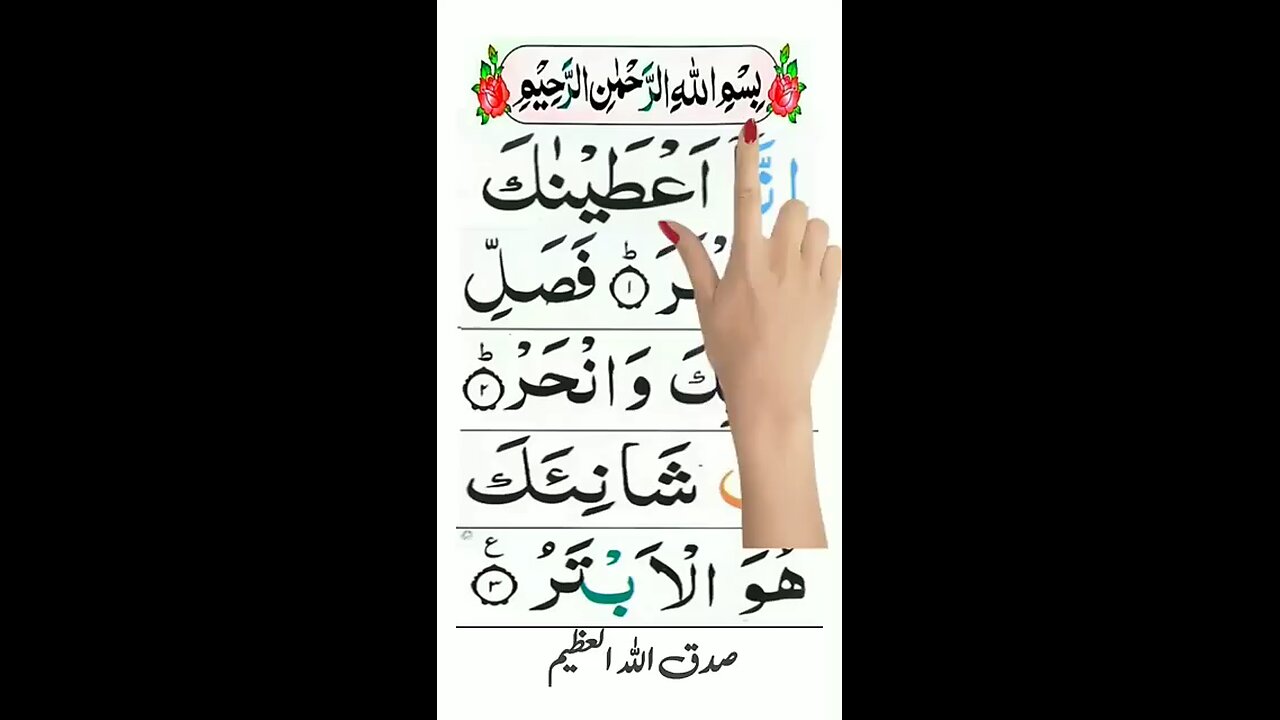 بِسْمِ اللهِ الرَّحْمٰنِ الرَّحِيْمِ
اَعْطَيْنٰكَ
۱ؕ فَصَلِّ
وَانْحَرْ ۲ؕ
شَانِئَكَ
هُوَ الْاَبْتَرُ ۳ ع
صدق الله العظيم